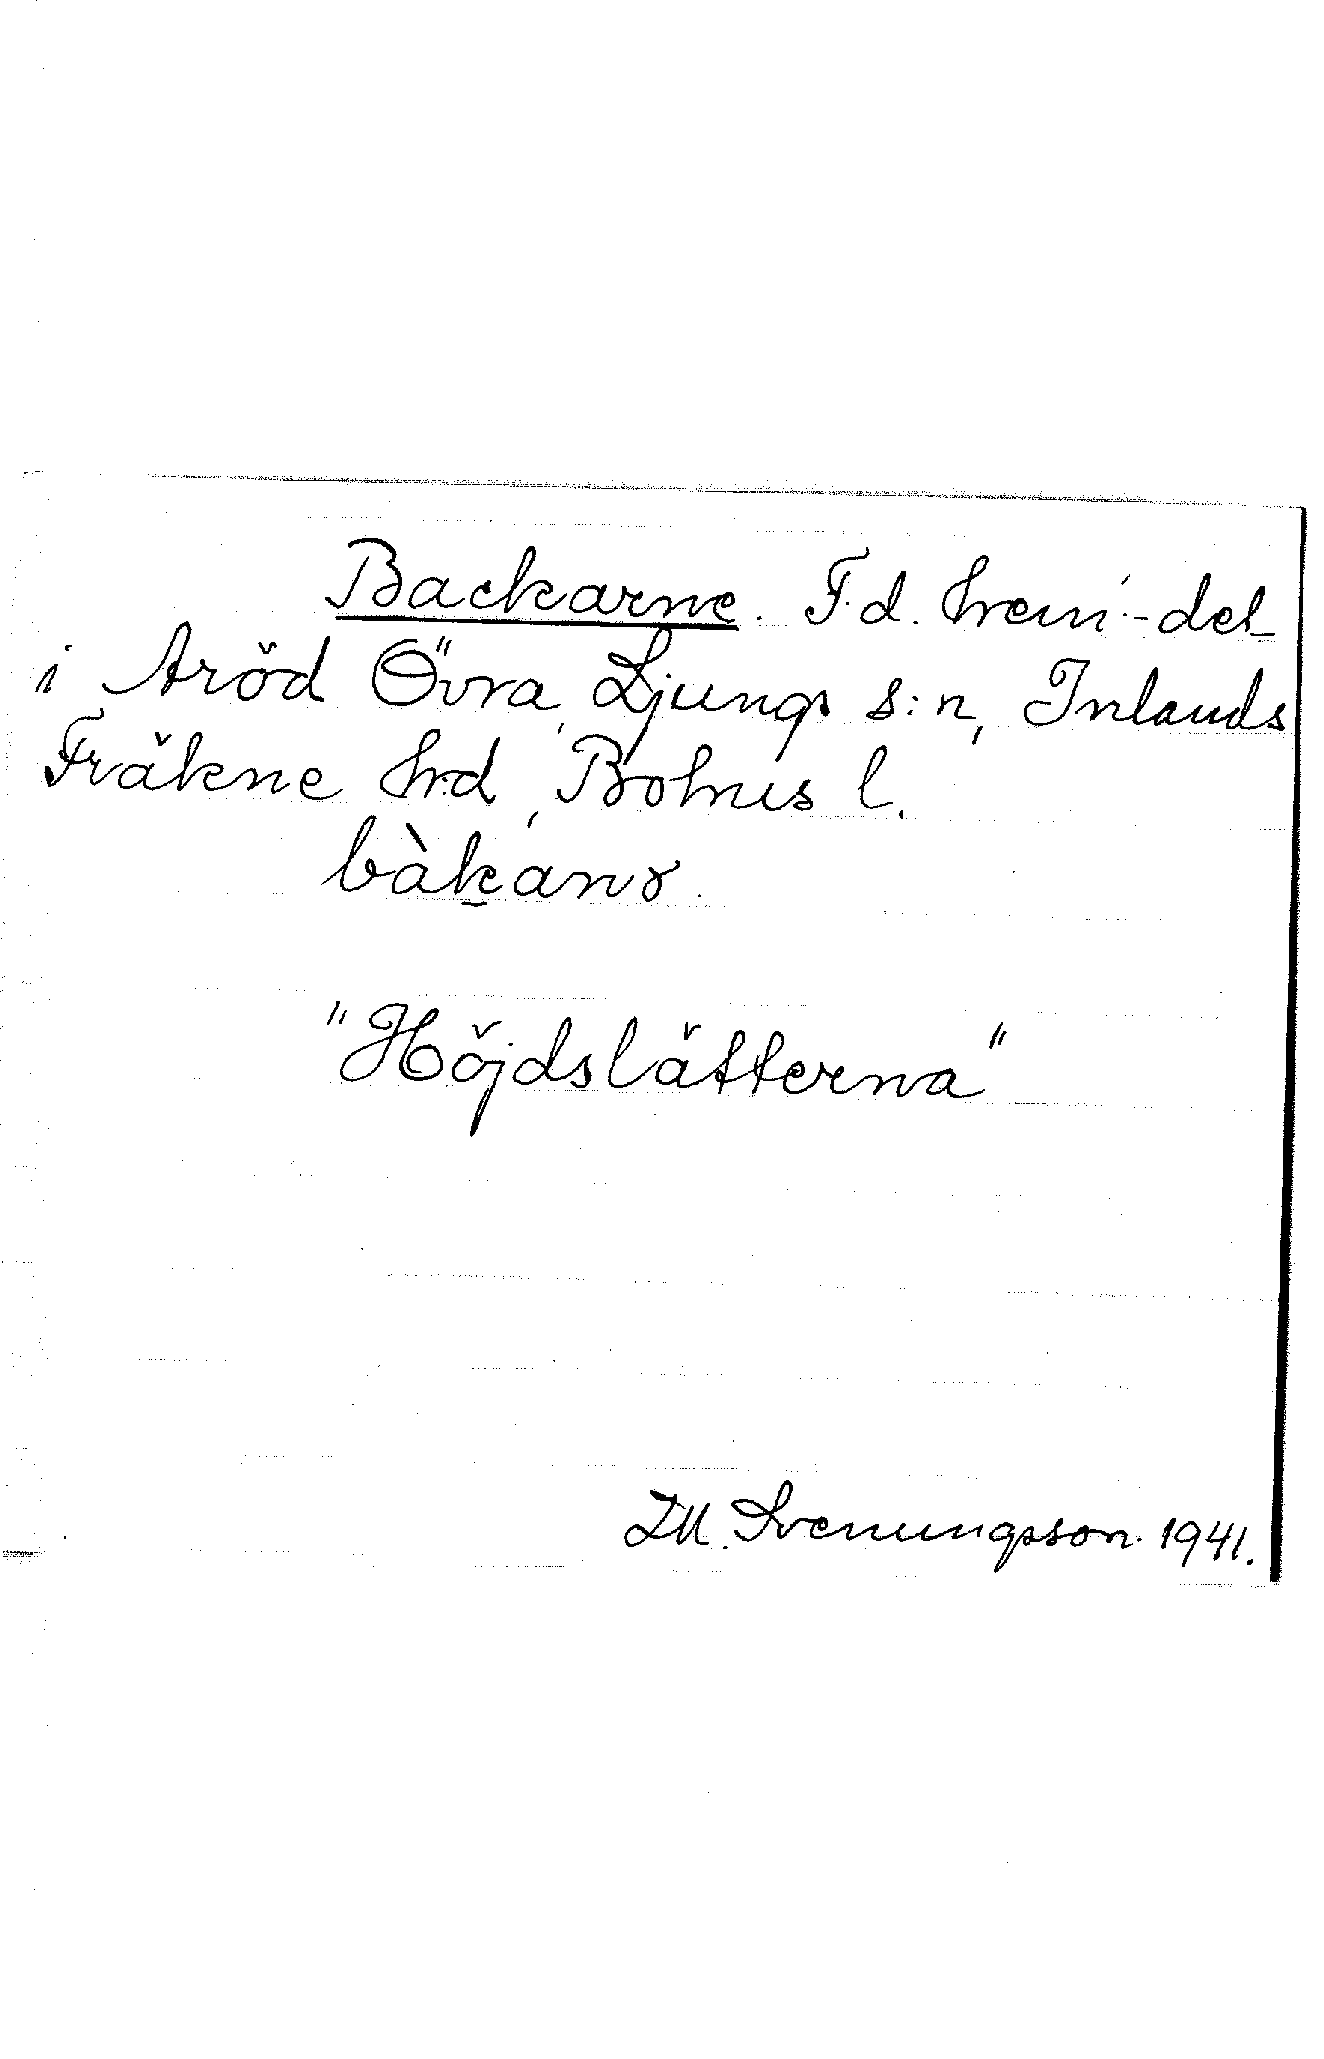 Backarne. F.d. hem.-del
i Aröd Övra, Ljungs s:n, Inlands
Fräkne hd, Bohus l.
bàkanɤ.
"Höjdslätterna"
Svenungsson. 1941.